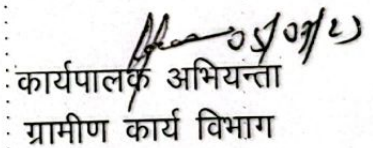 05/07/21
कार्यपालक अभियन्ता
ग्रामीण कार्य विभाग